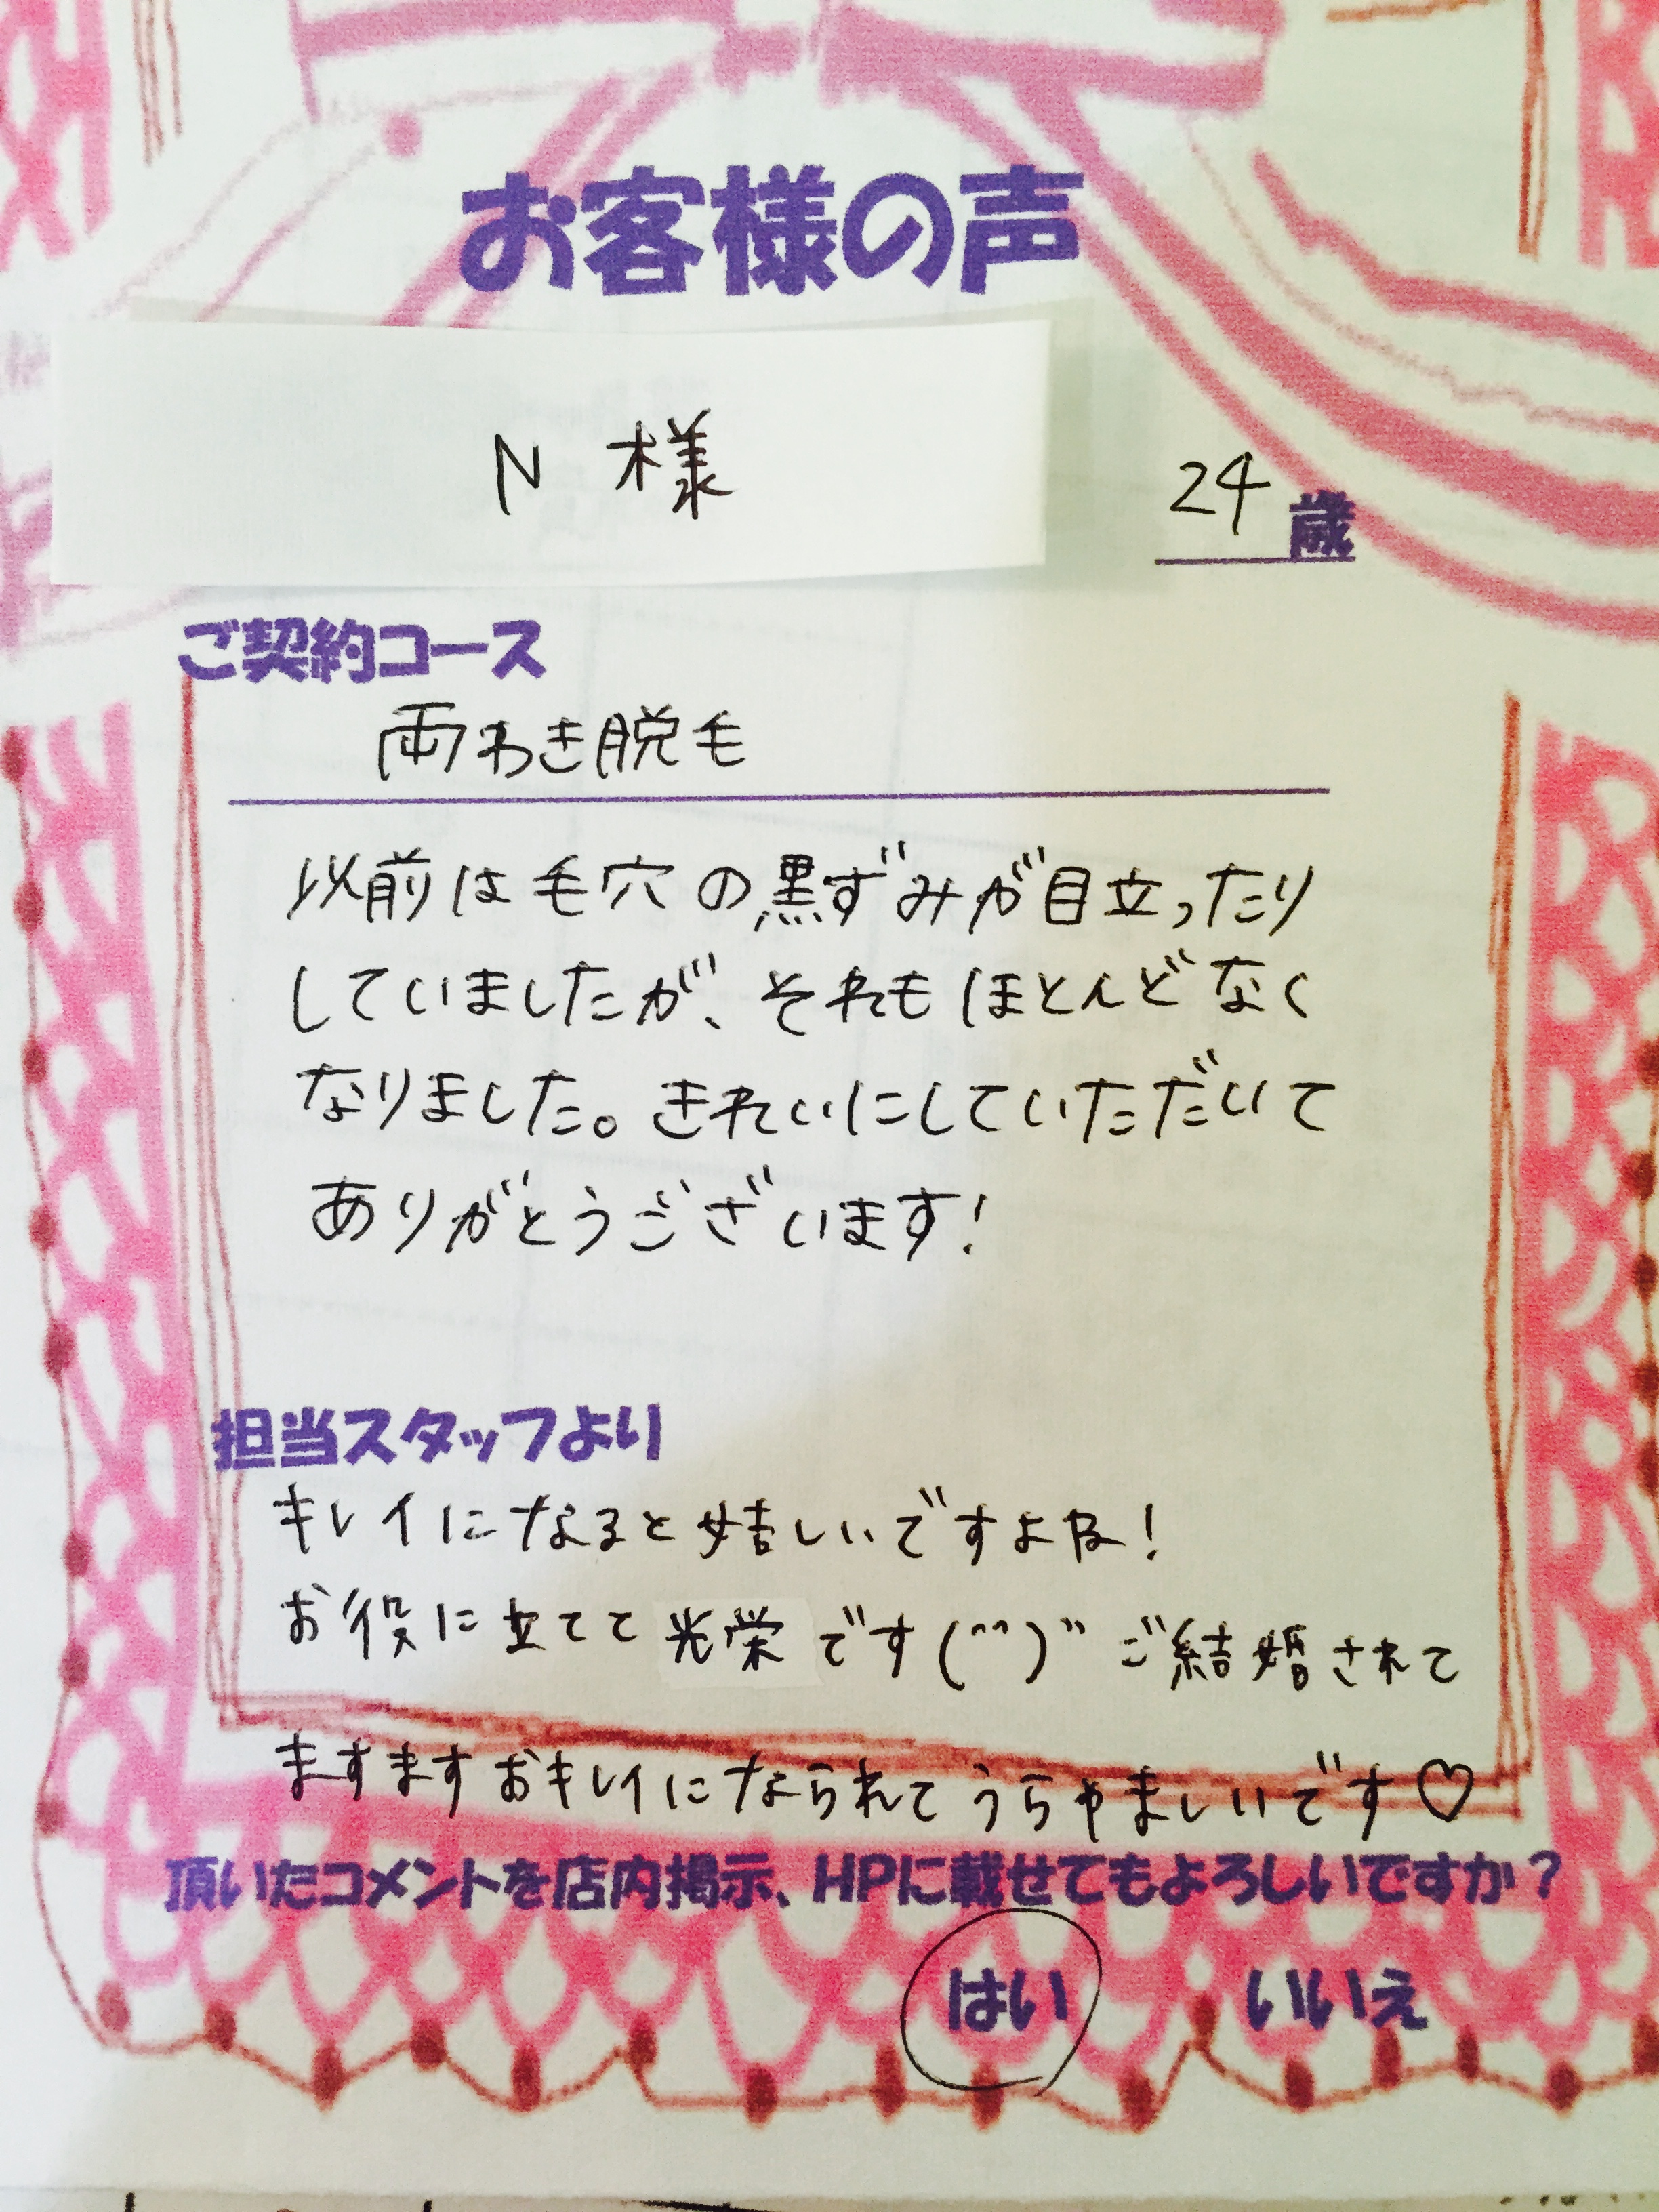 お客様の声
N 様
24歳
ご契約コース
両わき脱毛
以前は毛穴の黒ずみが目立ったり
していましたが、それもほとんどなく
なりました。きれいにしていただいて
ありがとうございます!
担当スタッフより
キレイになると嬉しいですよね!
お役に立てて光栄です(^^)" ご結婚されて
ますますおキレイになられてうらやましいです♡
頂いたコメントを店内掲示、HPに載せてもよろしいですか？
はい いいえ